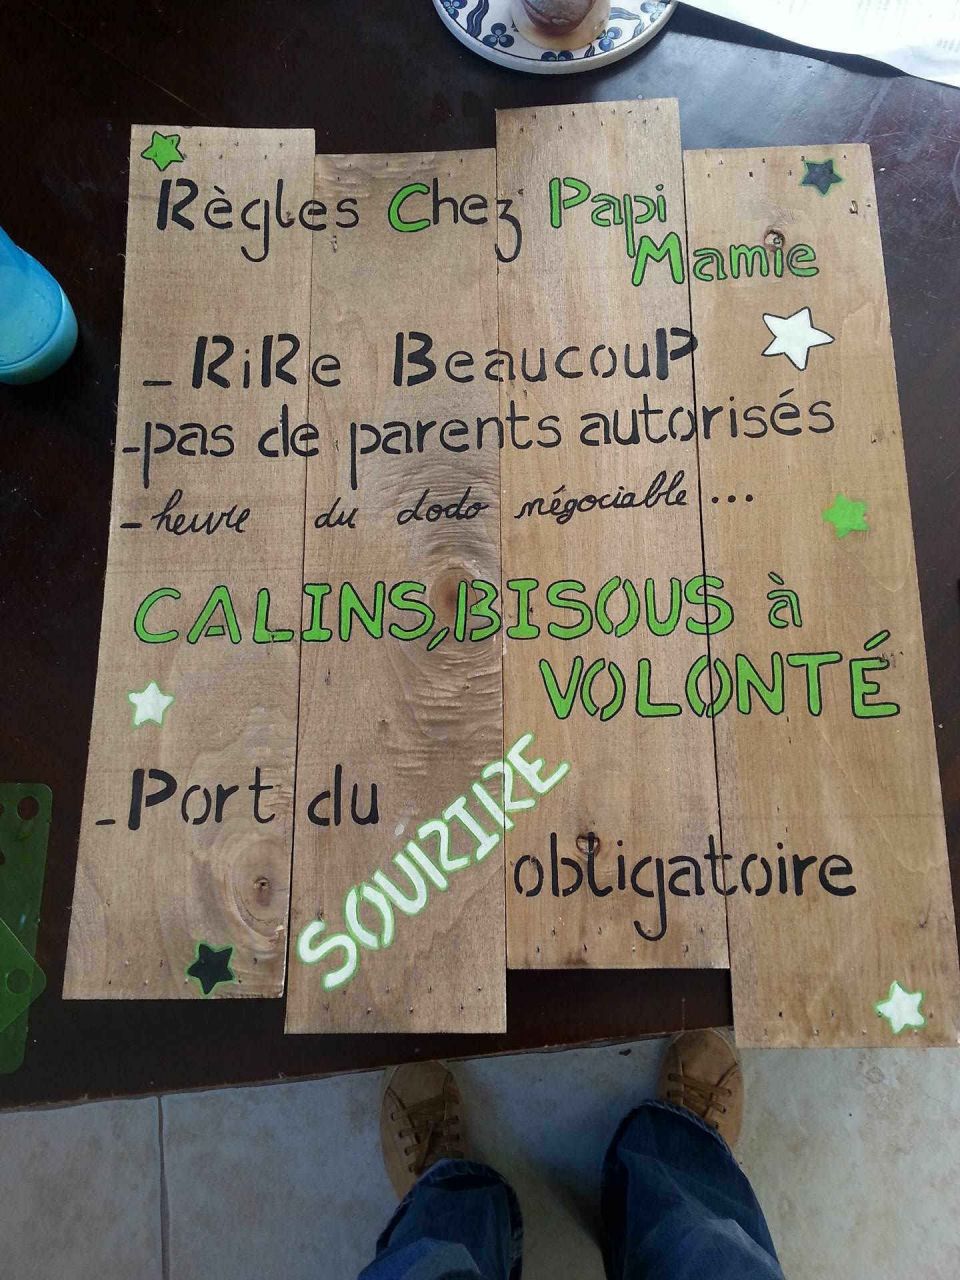 Règles Chez Papi
Mamie
_ RiRe BeaucouP
-pas de parents autorisés
- heure du dodo négociable ...
CALINS, BISOUS à
VOLONTÉ
- Port du
SOURIRE
obligatoire